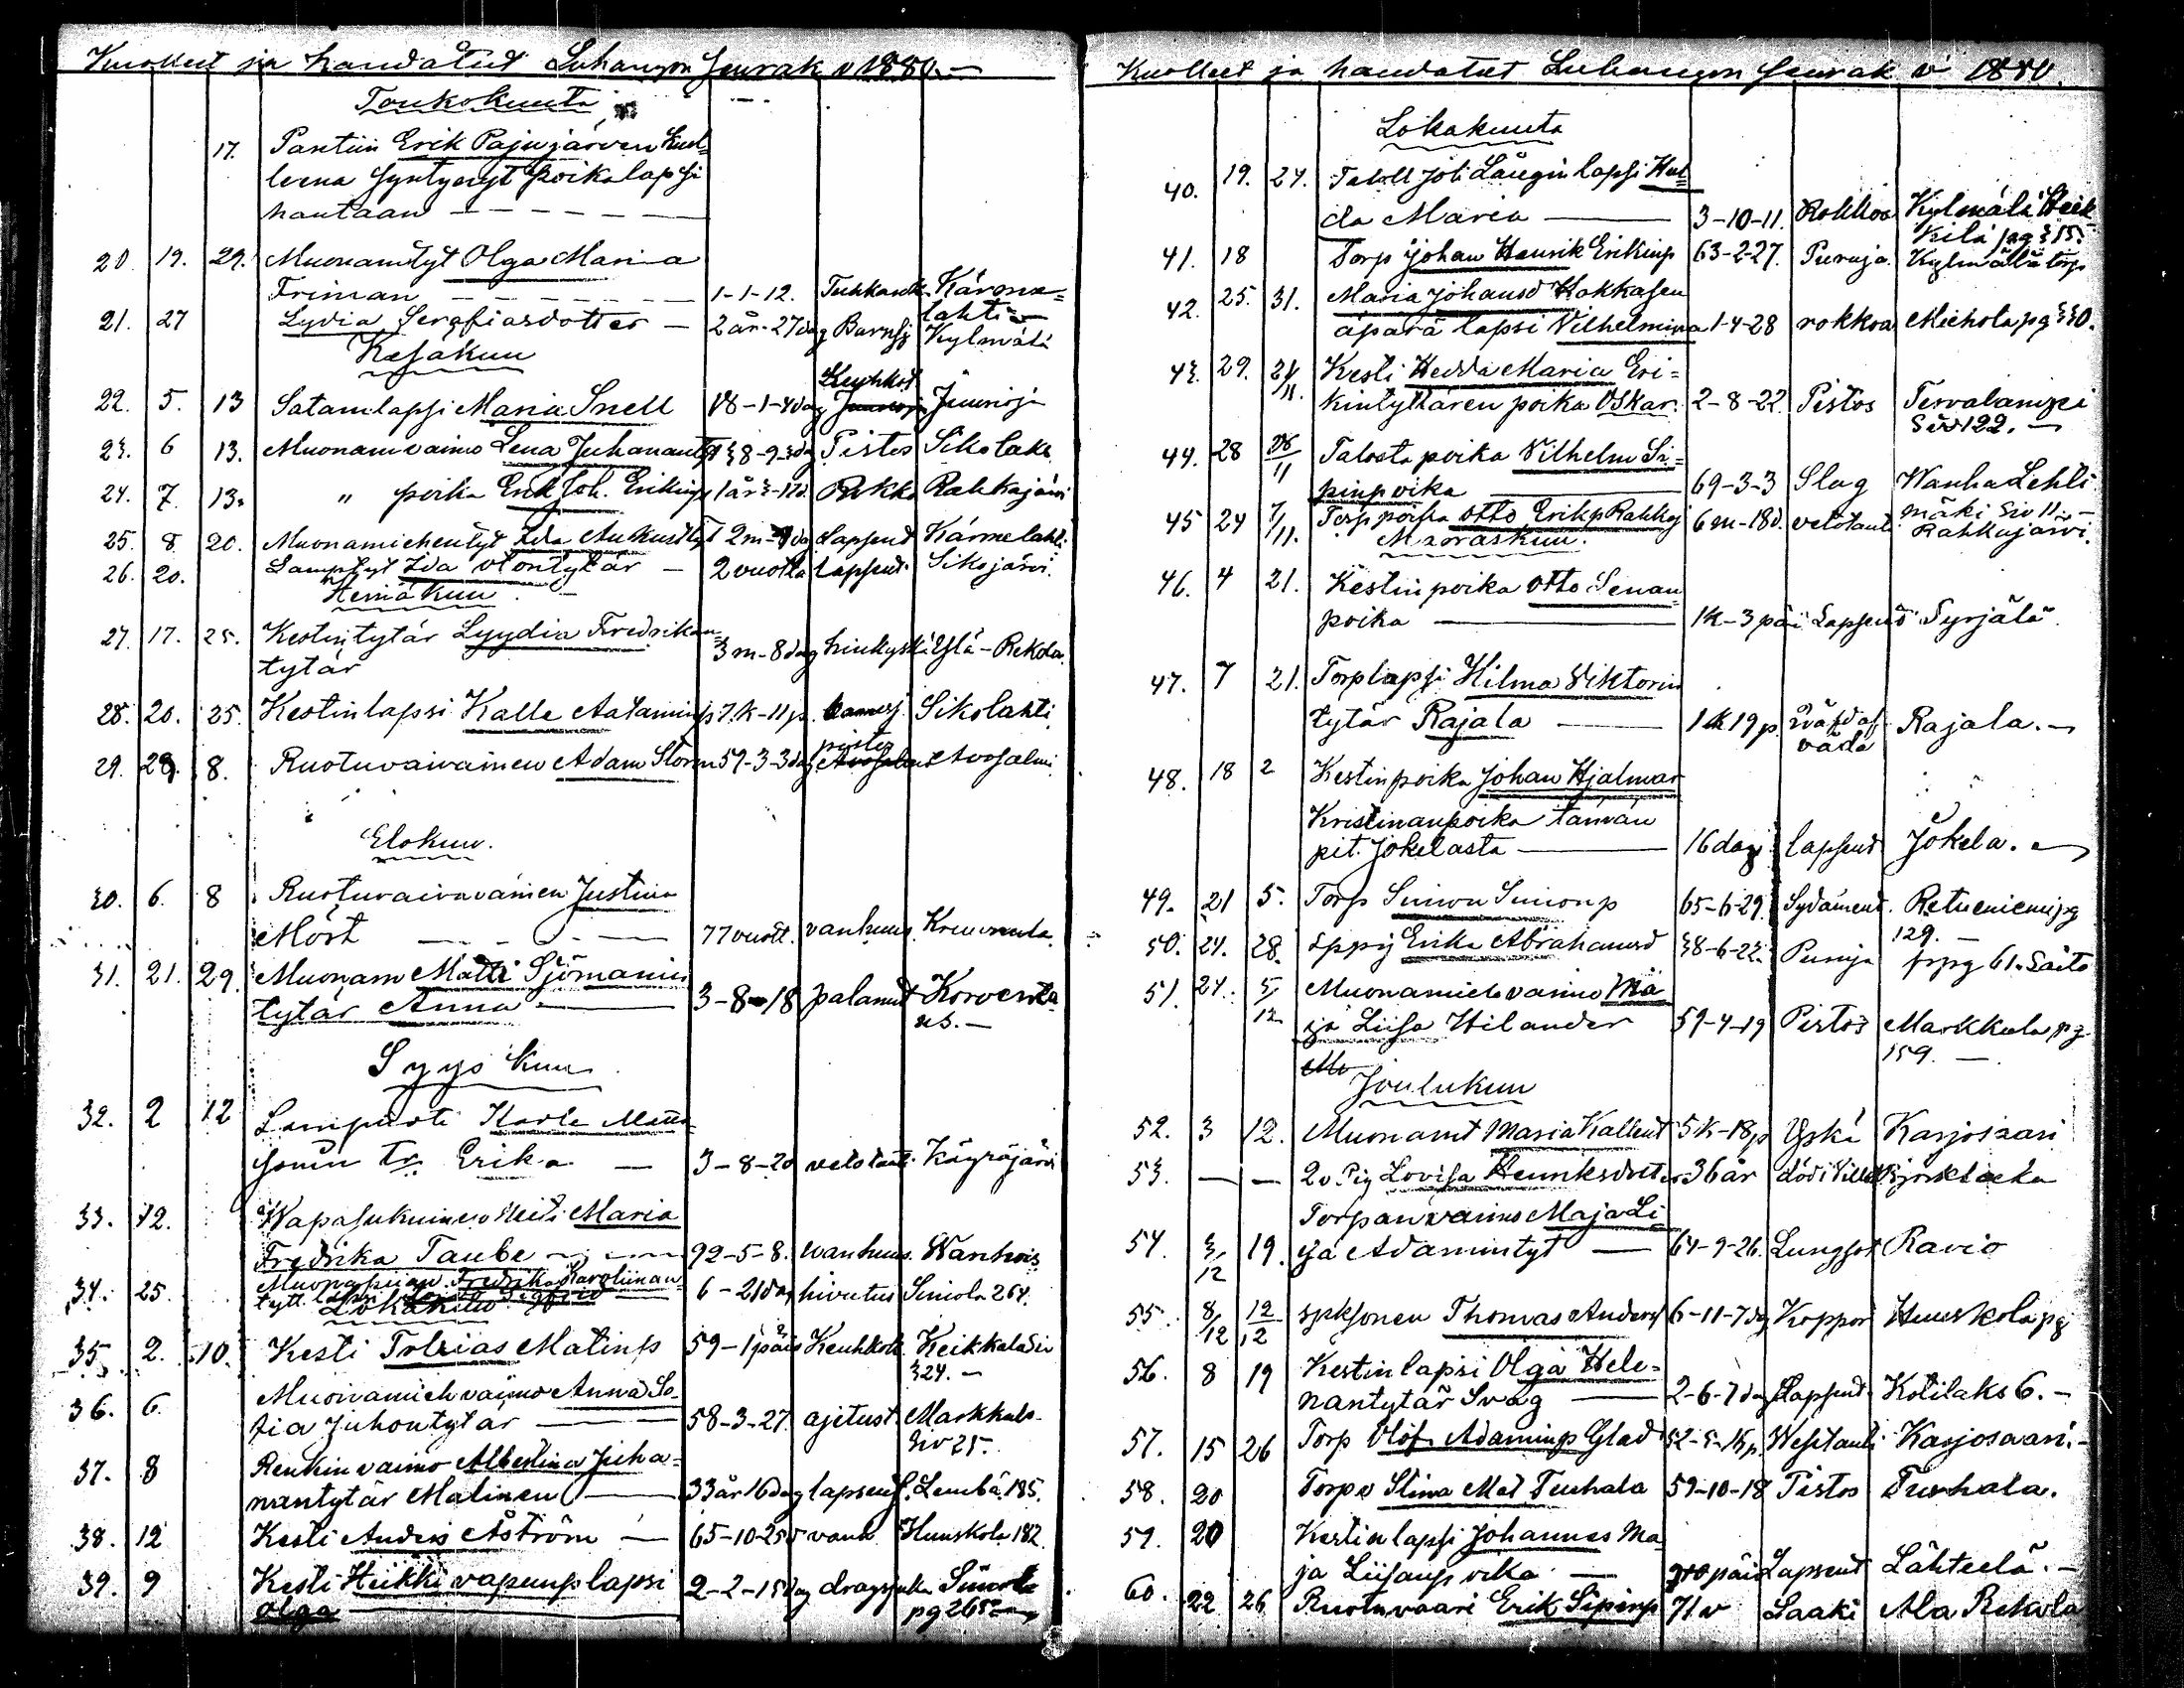 Kuolleet ja haudatut Luhangon seurak v 1880.
Toukokuuta
17. Erik Pajujärven
syntynyt poikalapsi
hautaan
20. 19. 29. Muonamtyt Olga Maria
Friman 1-1-12. Tuhkarok Kärme=
lahti
21. 27 Lydia Serafiasdotter 2 år-27dag Barnsj Kylmälä
Kesäkuu
Keuhkot
22. 5. 13 Satamlapsi Maria Snell 18-1-4dag Juurioja
23. 6 13. Muonamvaimo Lena Juhanant 38-9-3dag Pistos Sikolaks
24. 7. 13. " poika Erik Joh. Erikinp 1år3-12d. Rokko Rahkajärvi
25. 8. 20. Muonamiehentyt Ida Aukustityt 2m-8dag Lapsent Kärmelahti
26. 20. Lamptyt Ida Ottontytär 2 vuotta lapsent Sikojärvi.
Heinäkuu
27. 17. 25. Kestintytär Lyydia Fredrikan=
tytär 3m-8dag hinkyskä Ylä-Rekola
28. 20. 25. Kestinlapsi Kalle Aataminp 7.k-11p. Sikolahti
pistos
29. 29. 8. Ruotuvaivainen Adam Storm 59-3-3dag Avosalmi
Elokuu.
30. 6. 8 Ruotuvaivavainen Justina
Mört 77 vuott. vanhuus.
31. 21. 29. Muonam Matti Sjömanin
tytär Anna 3-8-18 palanut Korvenka
us.
Syyskuu
32. 2 12 Lampuoti Karle Matts
sonin tr. Erika 3-8-20 vetotauti Käyräjärvi
33. 12. Wapasukuinen Neiti Maria
Fredrika Taube 92-5-8. wanhuus. Wanhois
34. 25. Muonapiian Fredrika Karoliinan=
tytt. lapsi 6-21dag hivutus Siniola 264.
Lokakuu
35. 2. 10. Kesti Tobias Matinp 59-1päiv Keuhkot. Keikkala Siv
324.
36. 6. Muonamieh vaimo Anna So
fia Juhontytär 58-3-27. ajetust Markkula
Siv 25.
37. 8 Renkin vaimo Albertina Juha=
nantytär Malinen 33år16dag lapsens. Lembä. 185.
38. 12 Kesti Anders Åström 65-10-25 vanh Hunskola 182.
39. 9 Kesti Heikki vapuunp lapsi 2-2-15dag dragsjuka Siniola
Olga pg 265
Kuolleet ja haudatut Luhangon seurak v 1880.
Lokakuuta
40. 19. 24. Taloll joh Långin lapsi Hul=
da Maria 3-10-11. Rokkoa Kylmälä Heik
kilä pag 315.
41. 18 Torp Johan Henrik Erikinp 63-2-27. Punaja. Kylmälä torp
42. 25. 31. Maria Johansd Kokkasen
äpärä lapsi Vilhelmina 1-4-28 rokkoa Mickola pg 330.
43. 29. 21/11. Kesti Hedda Maria Eri=
kintyttären poika Oskar. 2-8-22 Pistos Tervalamp
Siv 122.
44. 28 /11 Talosta poika Vilhelm Si=
pinpoika 69-3-3 Slag Wanha Lehti
mäki Siv 11
45 24 7/11. Torp poika Otto Erikp Rahkaj 6m-18d. vetotaut Rahkajärvi.
Marraskuu.
46. 4 21. Kestin poika Otto Senan
poika 1k-3 päi Lapsent Syrjälä
47. 7 21. Torplapsi Hilma Viktorin
tytär Rajala 1k 19p. Rajala.
48. 18 2 Kestinpoika Johan Hjalmar
Kristinanpoika tämän
pit. Jokelasta 16dag lapsent Jokela.
49. 21 5. Torp Simon Simonp 65-6-29. Sydäment. Retuniemi pg
129.
50. 24. 28. Erika Abrahamsd 38-6-22. Punija 61. Saito
51. 24. 5/12 Muonamieh vaimo Ma
ja Liisa Hilander 59-4-19 Pistos Markkula pg
159.
Joulukuu
52. 3 12. Muonamt Maria Kallent 5k-18p Yskä Karjosaari
53. Pig Lovisa Henriksdotter 36år
54. 3/12 19. Torpanvaimo Maja Li=
sa Adamintyt 64-9-26. Lungsot Ravio
55. 8/12 12/12 Thomas Anders 6-11-7dg Koppor Hunskola pg
56. 8 19 Kestinlapsi Olga Hele=
nantytär Svag 2-6-7dag Lapsent Kotilaks 6.
57. 15 26 Torp Olof Adaminp Glad 52-5-1kp. Wesitauti Karjosaari.
58. 20 Torp v Stina Mat Tuuhala 59-10-18 Pistos Tuuhala.
59. 20 Kestin lapsi Johannes Ma
ja Liisanpoika päi Lapsent Lähteelä.
60. 22 26 Ruotuvaari Erik Sipinp 71v Laaki Ala Rekola